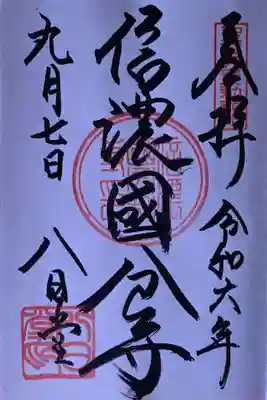 奉拝 令和六年
信濃國分寺
九月七日 八日堂